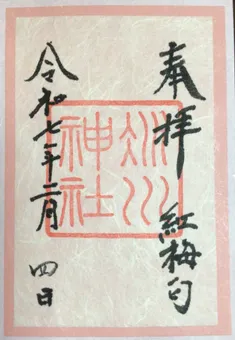 奉拝 紅梅匂
氷川
神社
令和七年二月 四日